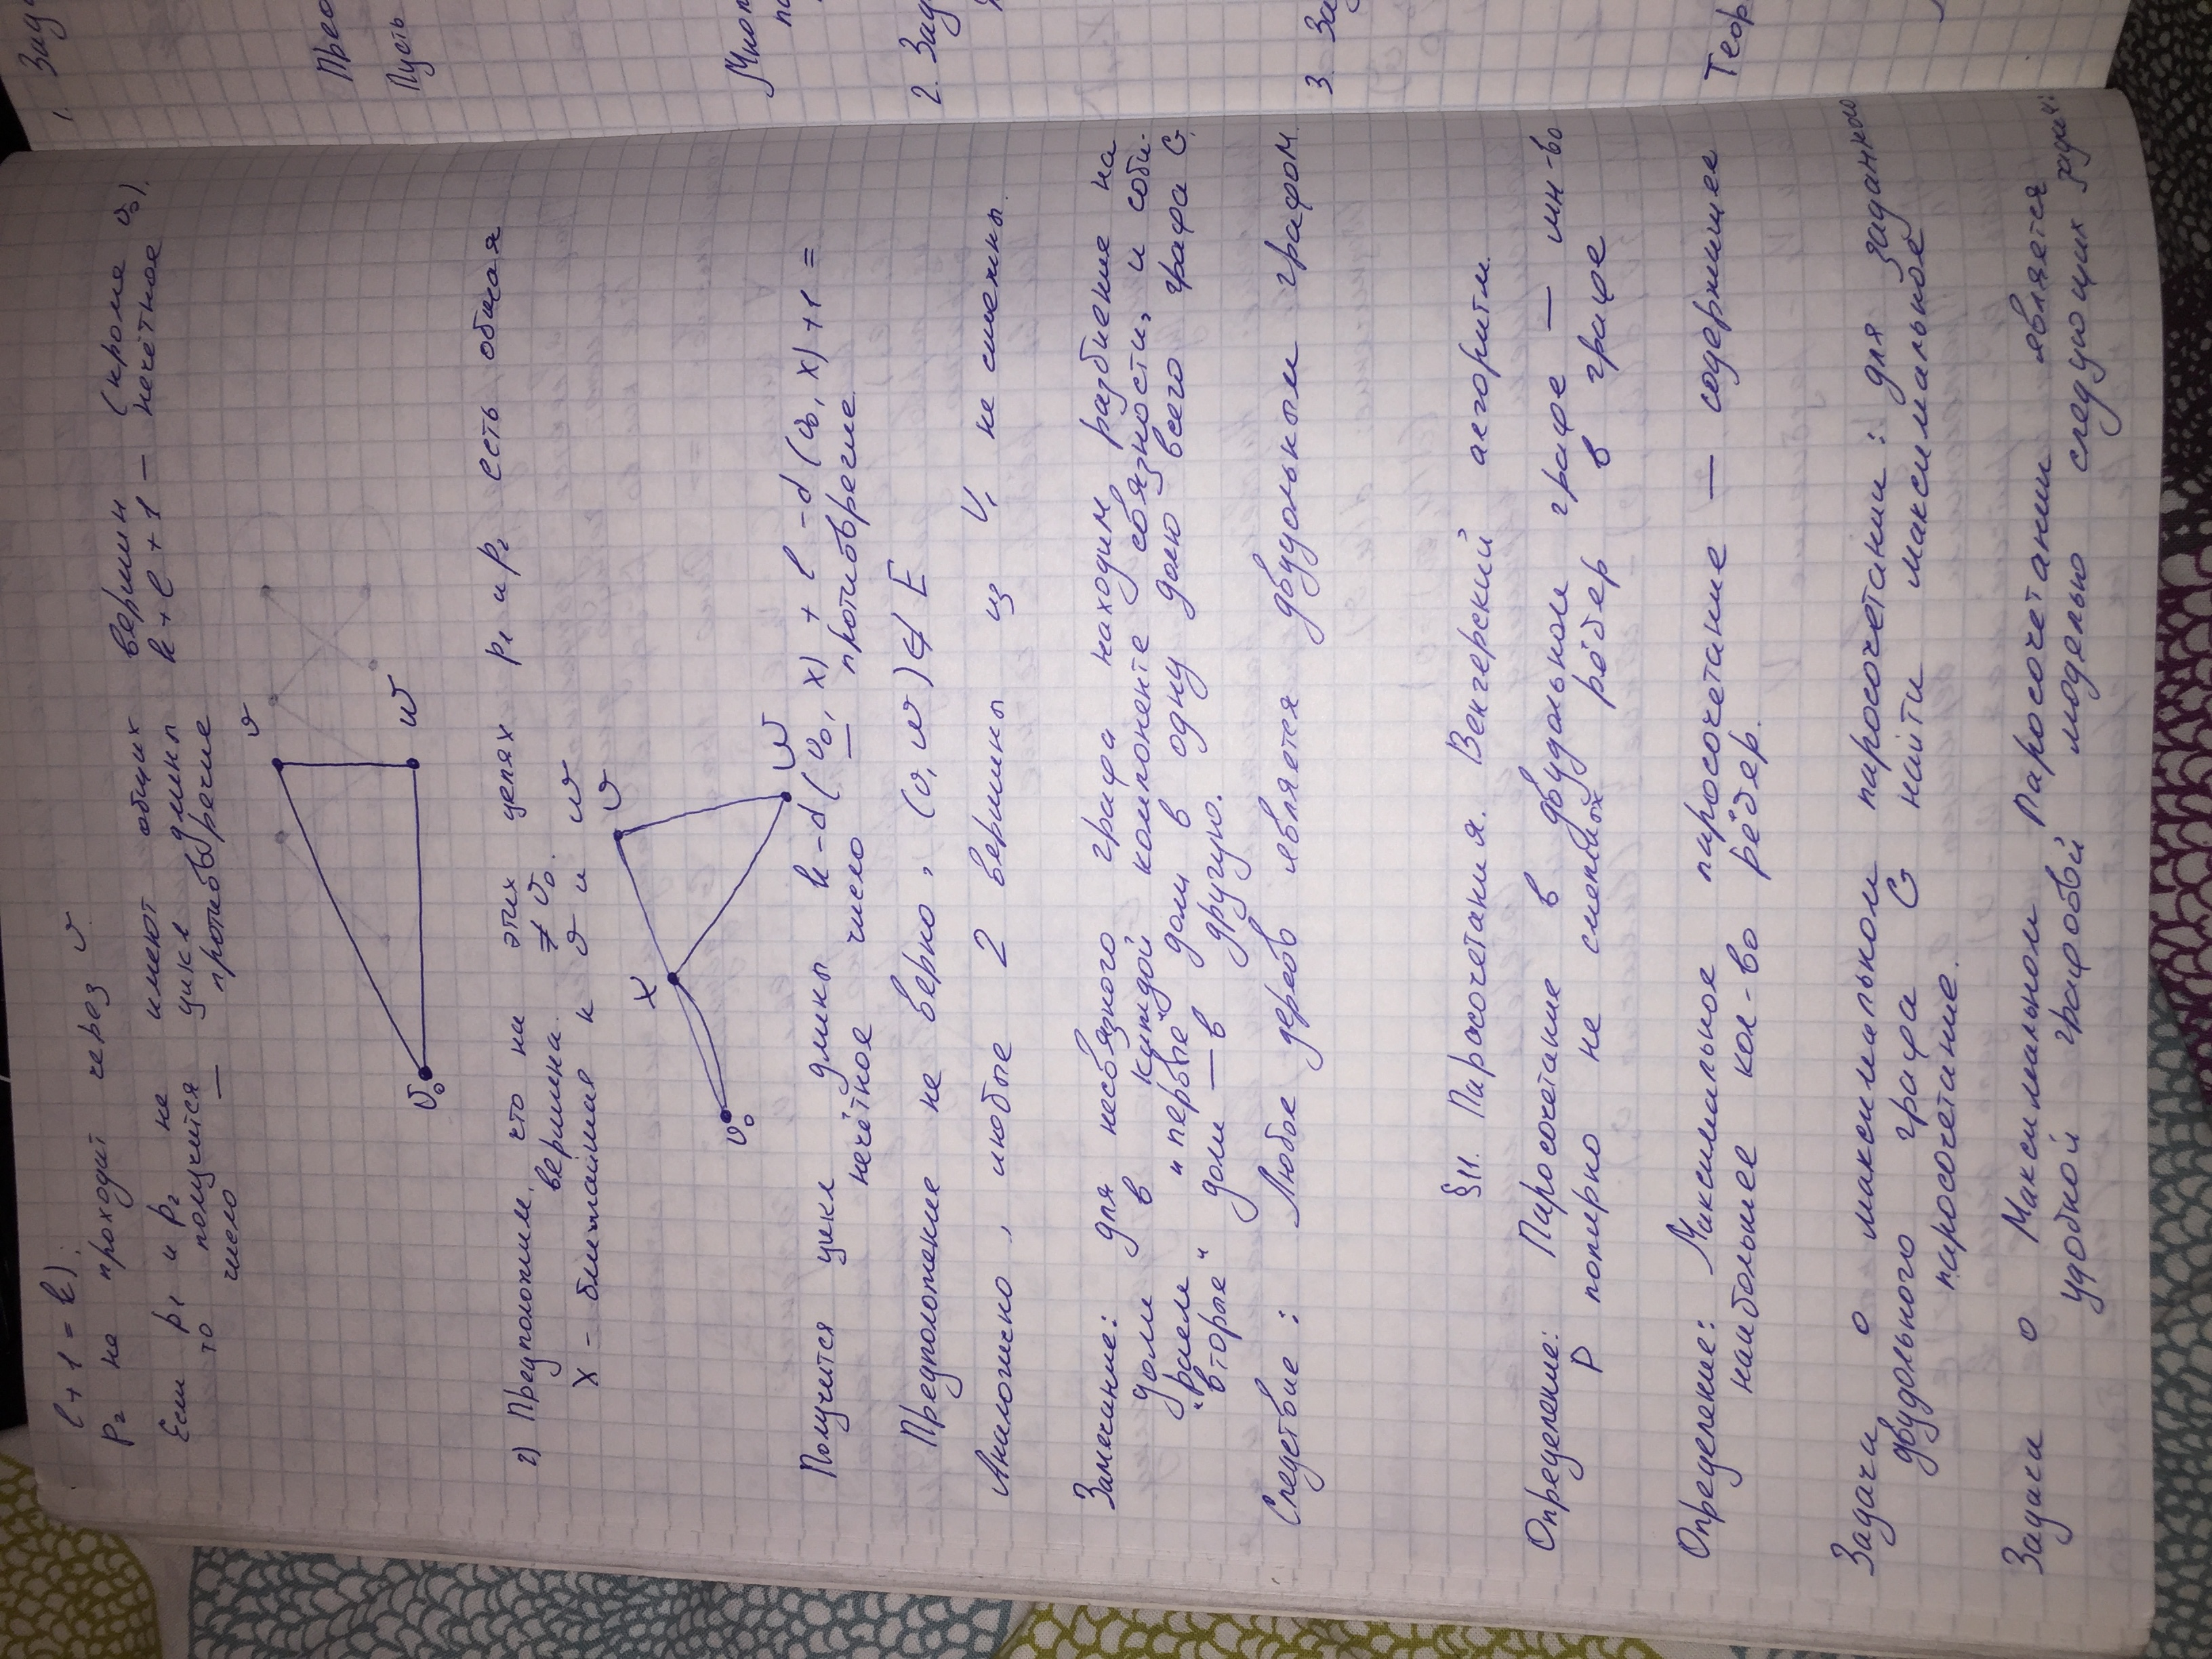 l+1=k);
p₂ не проходит через v.
Если p₁ и p₂ не имеют общих вершин (кроме v₀),
то получится цикл длины k+l+1 — нечётное
число — противоречие
v
v₀
w
2) Предположим, что на этих цепях p₁ и p₂ есть общая
вершина. ≠ v₀.
X - ближайшая к v и w
v
X
v₀
w
Получится цикл длины k-d(v₀, x) + l -d(v₀, x)+1 =
нечётное число — противоречие.
Предположение не верно, (v,w)∉E
Аналогично, любые 2 вершины из V₁ не смежны.
Замечание: для несвязного графа находим разбиение на
доли в каждой компоненте связности, и соби-
раем "первые" доли в одну долю всего графа G,
"вторые" доли — в другую.
Следствие: Любое дерево является двудольным графом.
§11. Паросочетания. Венгерский алгоритм.
Определение: Паросочетание в двудольном графе — мн-во
P попарно не смежных рёбер в графе
Определение: Максимальное паросочетание — содержащее
наибольшее кол-во рёбер.
Задача о максимальном паросочетании: для заданного
двудольного графа G найти максимальное
паросочетание.
Задача о Максимальном Паросочетании является
удобной графовой моделью следующих задач:
1. Зад
Пред
Пусть
2. Зад
3. За
Теор